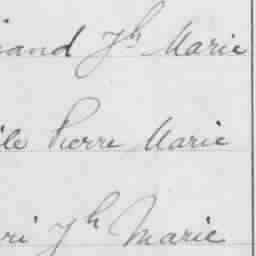 iand Jh Marie
ile Pierre Marie
ri Jh Marie